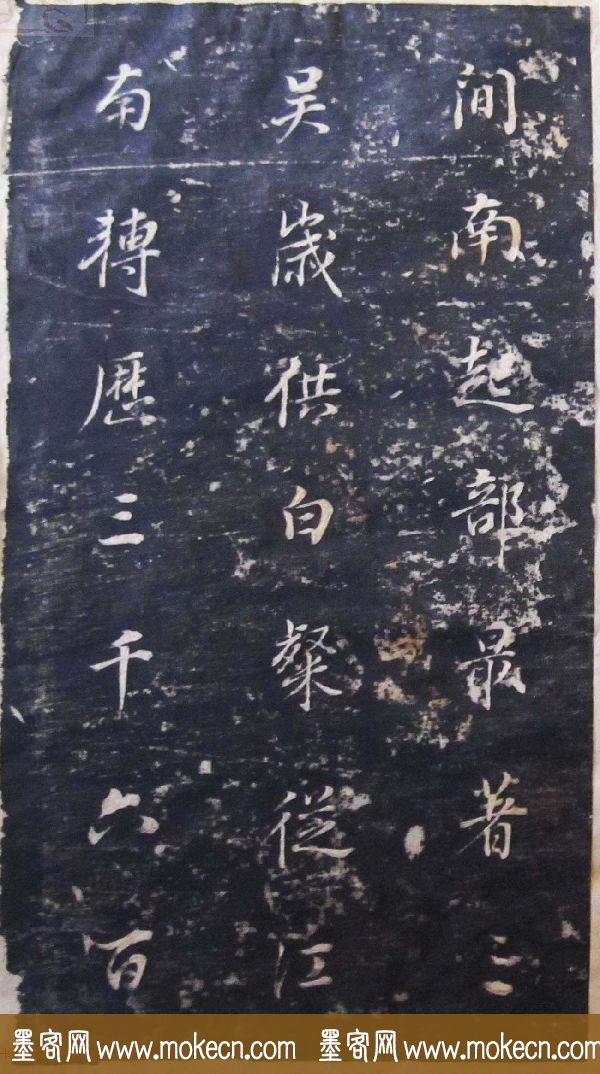 間南起部最著三
吳歲供白粲從江
南轉歷三千六百
墨客网 www.mokecn.com 墨客网 www.mokecn.com